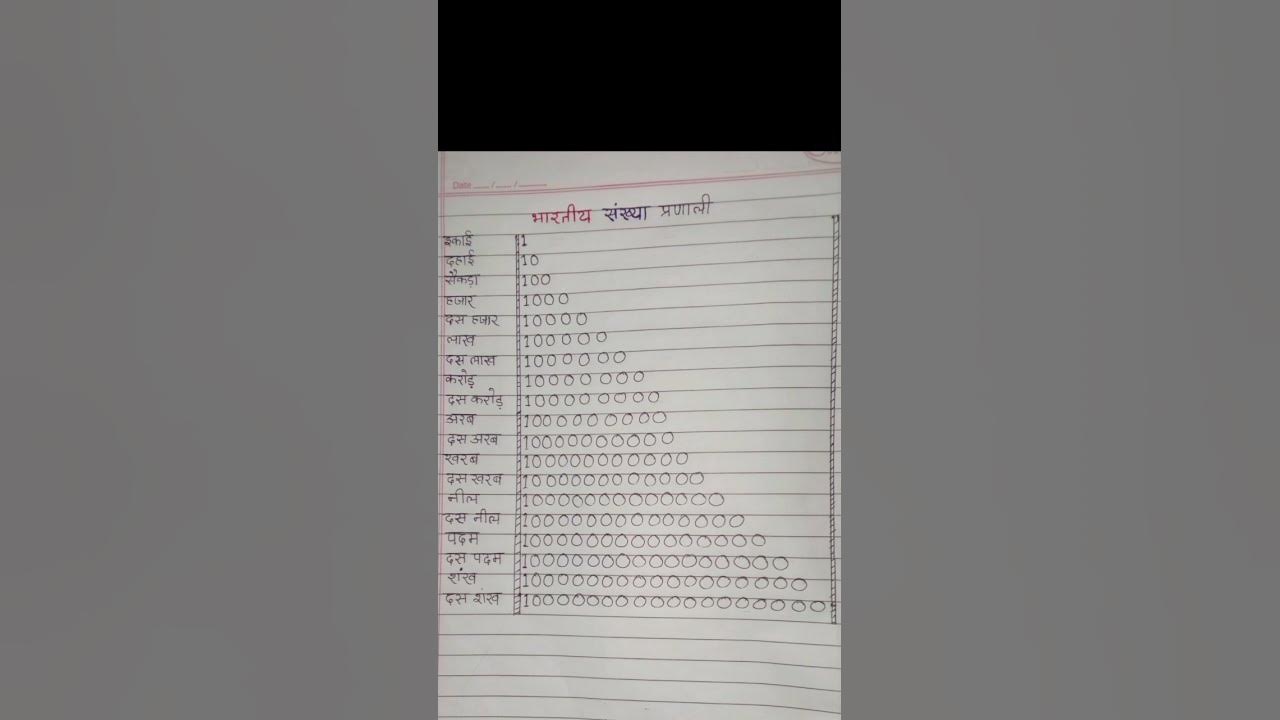 Date ...... / ...... / ..........
भारतीय संख्या प्रणाली
इकाई 1
दहाई 10
सैकड़ा 100
हजार 1000
दस हजार 10000
लाख 100000
दस लाख 1000000
करोड़ 10000000
दस करोड़ 100000000
अरब 1000000000
दस अरब 10000000000
खरब 100000000000
दस खरब 1000000000000
नील 10000000000000
दस नील 100000000000000
पदम 1000000000000000
दस पदम 10000000000000000
शंख 100000000000000000
दस शंख 1000000000000000000